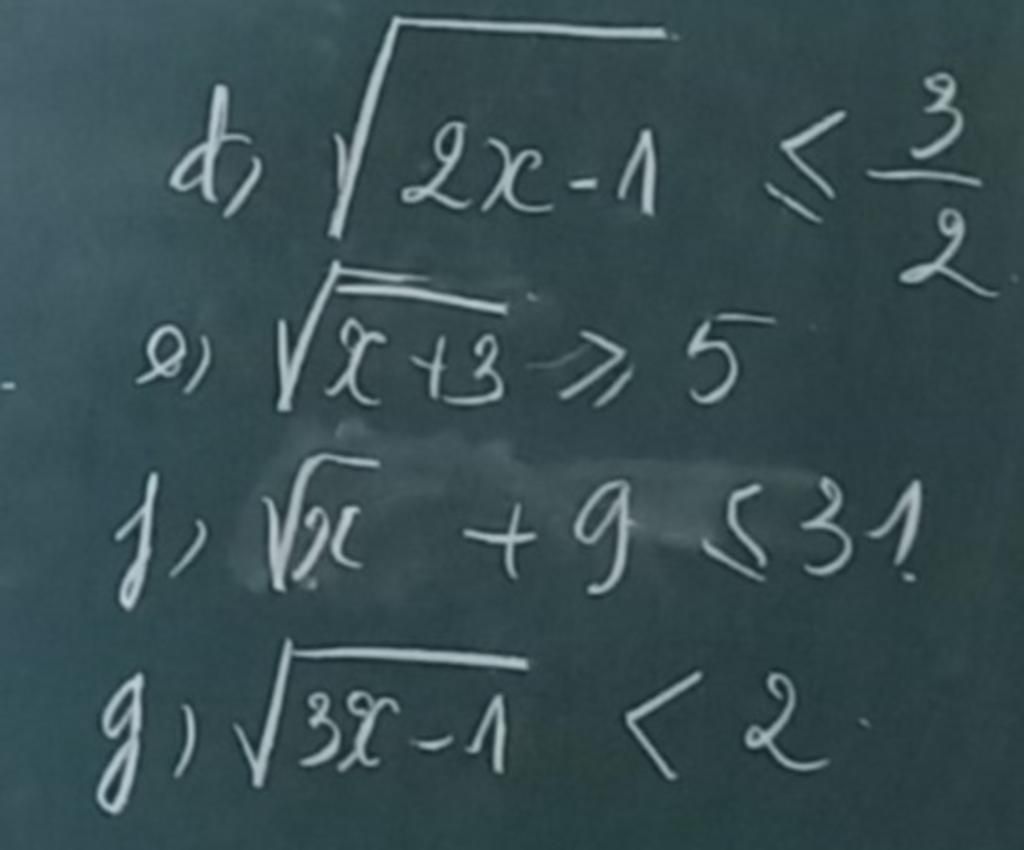 d, √(2x-1) ≤ 3/2
e) √(x+3) ≥ 5
f, √x + 9 ≤ 31
g) √(3x-1) < 2